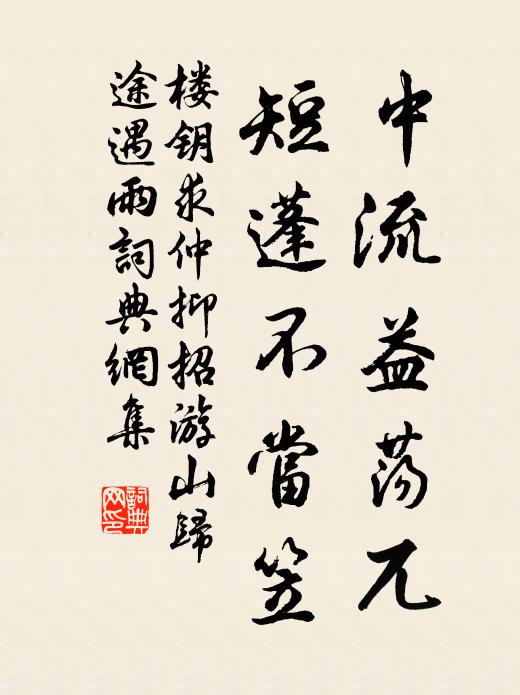 中流益荡兀
短蓬不當笠
楼钥求仲抑招游山歸
途遇雨詞典網集
詞典
网印